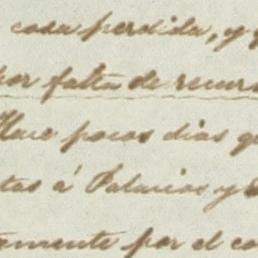 cada perdida, y
por falta de recur
Hace pocos dias q
tas á Palacios y
mente por el co